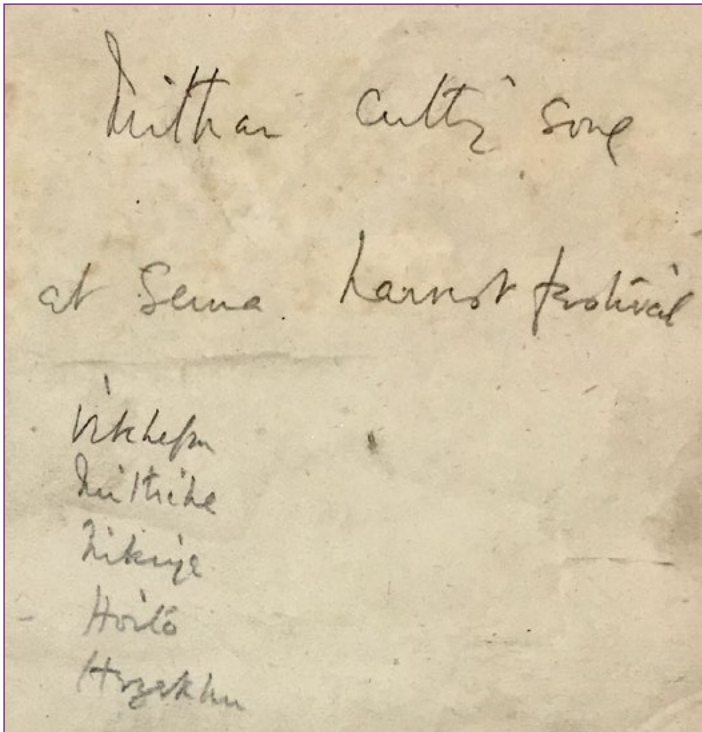 Mithan cutting song
at Sema harvest festival
Vikhepu
Nikiye
Hoito
Hezekhu